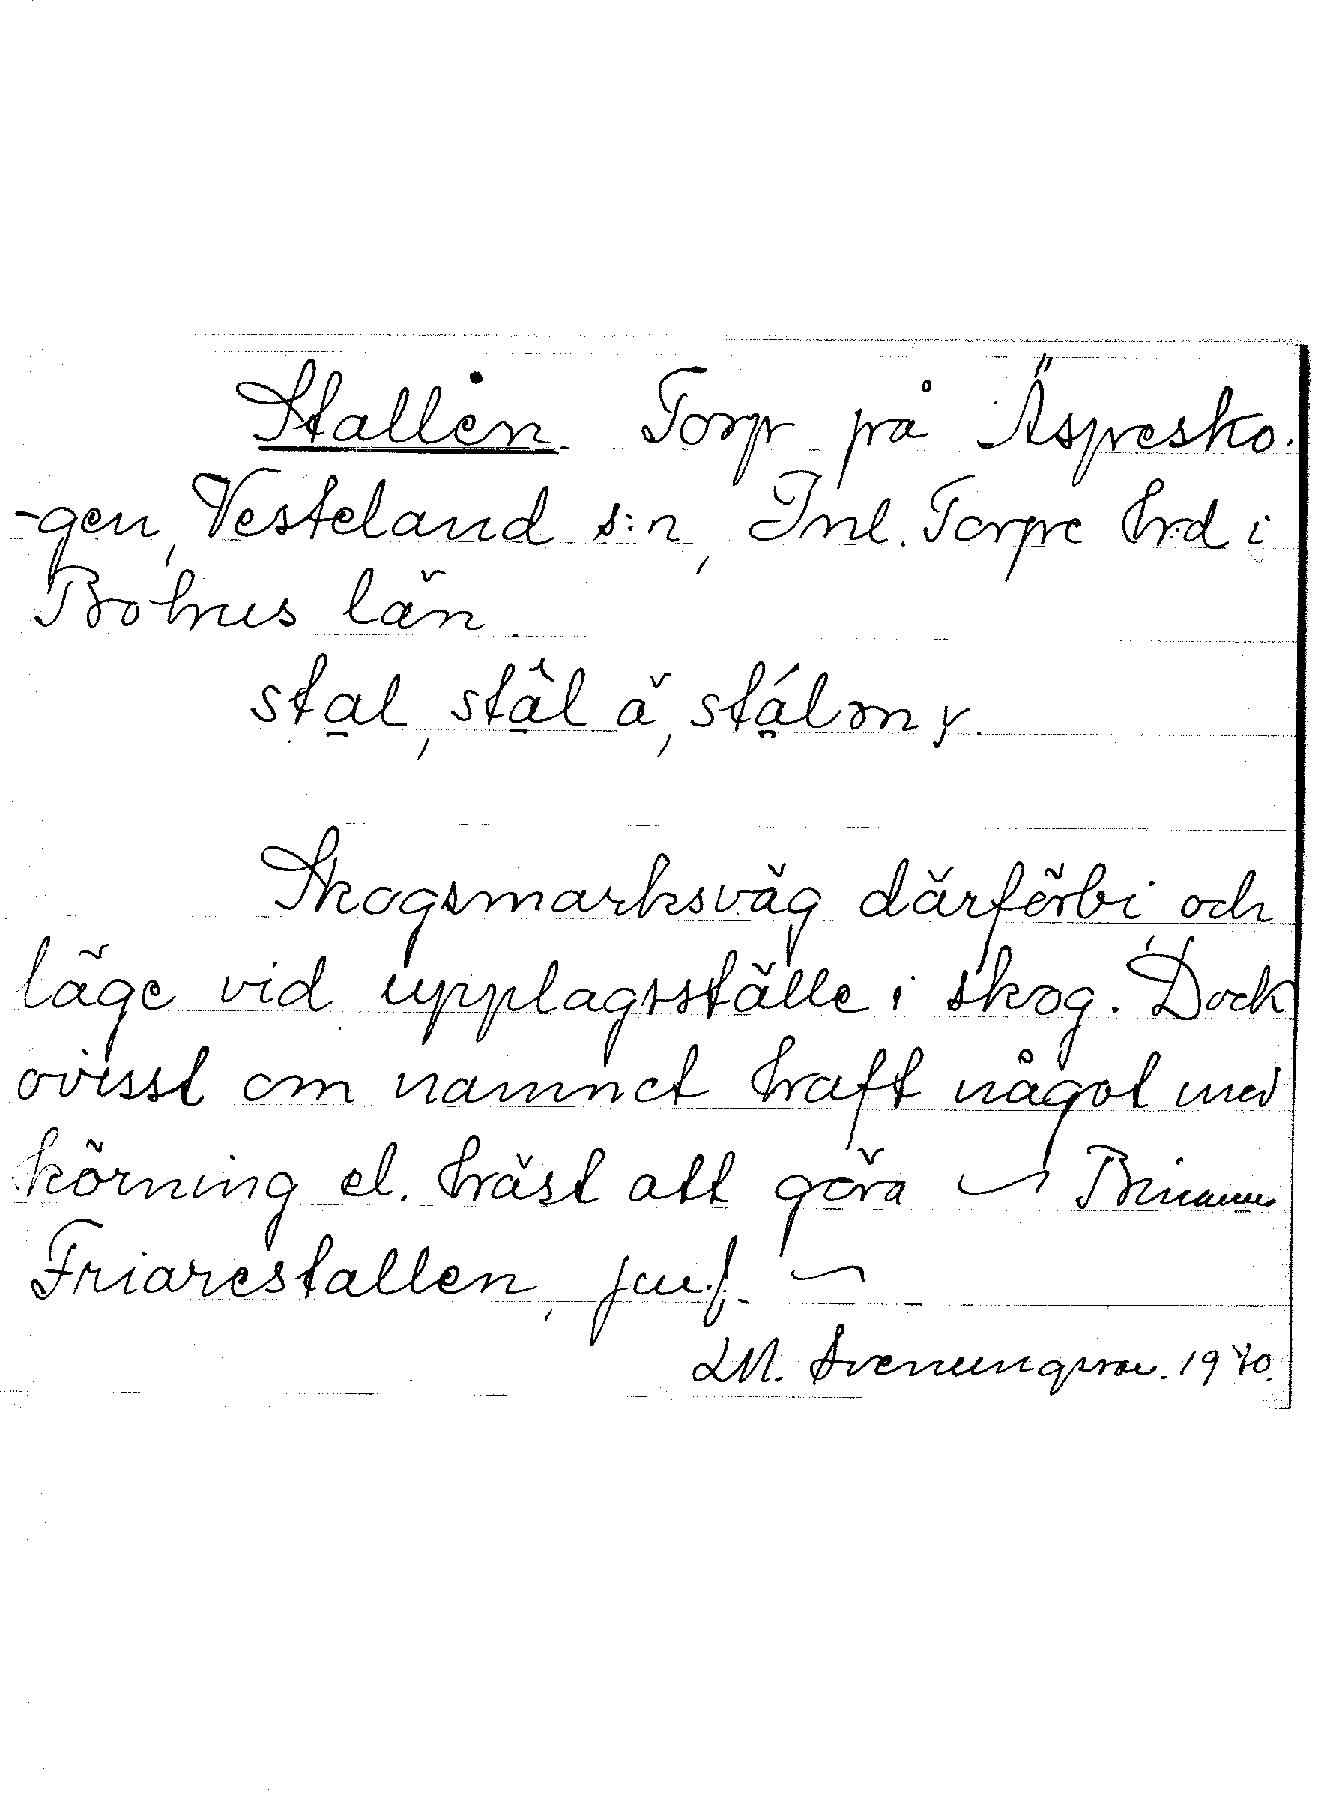 Stallen. Torp på Äspresko-
-gen, Vesteland s:n, Inl. Torpe hrd i
Bohus län
stal, stål å, stálmny.
Skogsmarksväg därförbi och
läge vid upplagsställe i skog. Dock
ovisst om namnet haft något med
körning el. häst att göra
Friarestallen, jmf.
LM. Svenungsson. 1940.